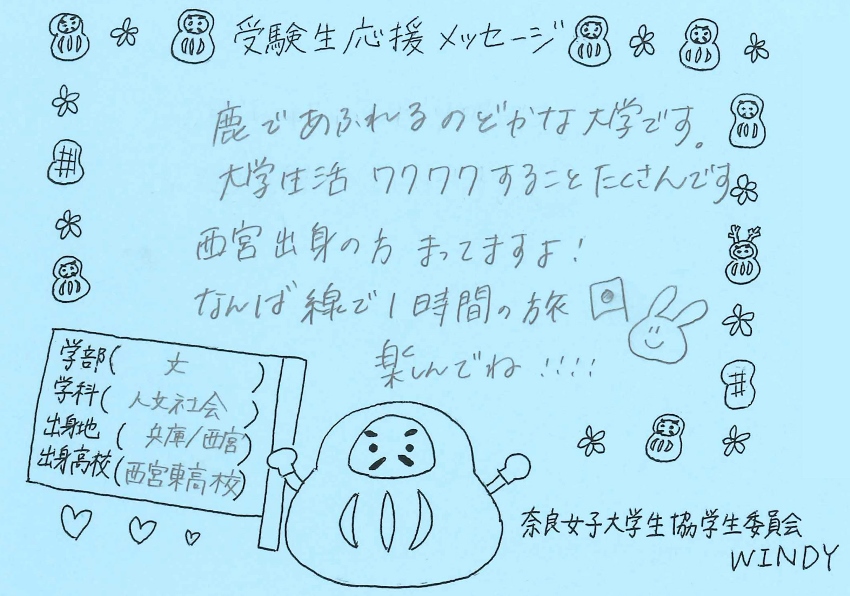 受験生応援メッセージ
鹿であふれるのどかな大学です。
大学生活 ワクワクすることたくさんです
西宮出身の方 まってますよ!
なんば線で1時間の旅
楽しんでね!!!!
学部( 文 )
学科( 人文社会 )
出身地( 兵庫/西宮 )
出身高校(西宮東高校)
奈良女子大学生協学生委員会
WINDY